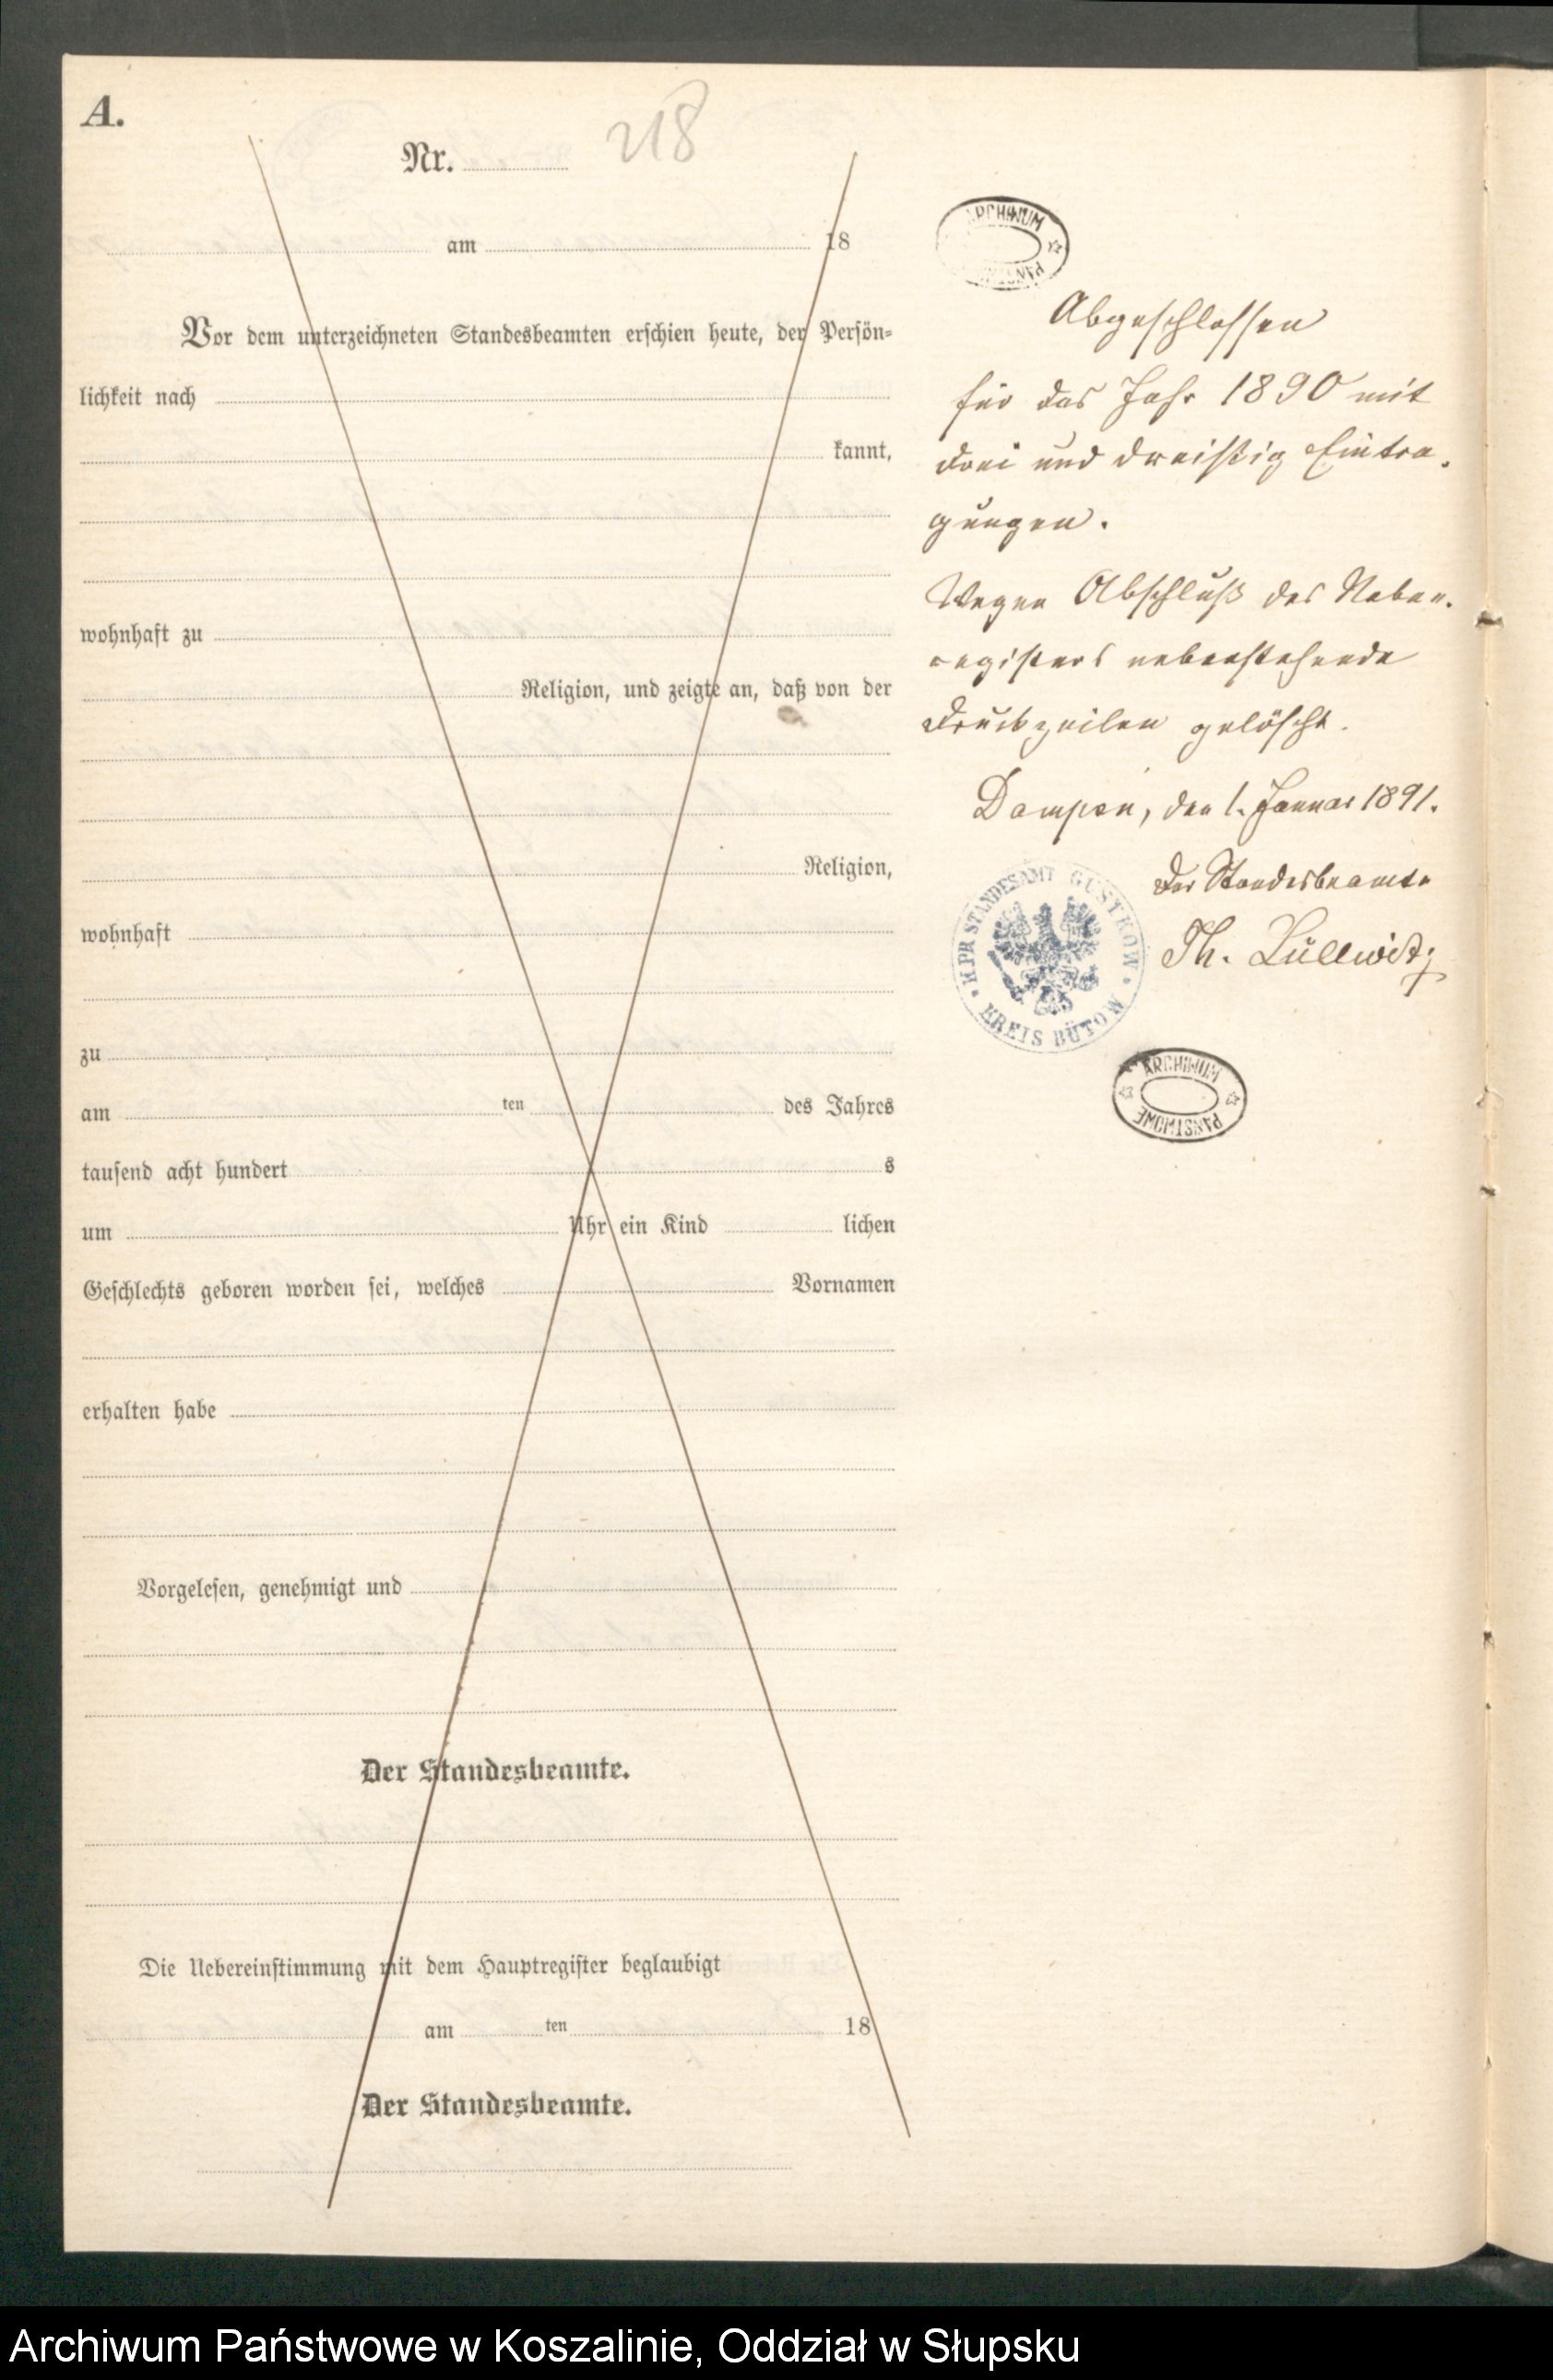 A.
Nr. 218
am 18
Vor dem unterzeichneten Standesbeamten erschien heute, der Persön-
lichkeit nach
kannt,
wohnhaft zu
Religion, und zeigte an, daß von der
Religion,
wohnhaft
zu
am ten des Jahres
tausend acht hundert s
um Uhr ein Kind lichen
Geschlechts geboren worden sei, welches Vornamen
erhalten habe
Vorgelesen, genehmigt und
Der Standesbeamte.
Die Uebereinstimmung mit dem Hauptregister beglaubigt
am ten 18
Der Standesbeamte.
ARCHIWUM
Abgeschlossen
für das Jahr 1890 mit
drei und dreißig Eintra-
gungen.
Wegen Abschluß des Neben-
registers nebenstehende
Druckzeilen gelöscht.
Dampen, den 1. Januar 1891.
Der Standesbeamte
Th. Lüllwitz
K. PR. STANDESAMT GUSTKOW
KREIS BÜTOW
ARCHIWUM
PAŃSTWOWE
Archiwum Państwowe w Koszalinie, Oddział w Słupsku